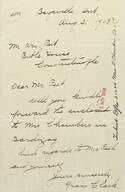 Aug 21
Mr. Wm. Peet
Bible House
Constantinople
Dear Mr Peet
Will you kindly
forward the enclosed
to Mrs Chambers in
Bardizag
Kind regards to Mrs Peet
and yourself
Yours sincerely
Grace Clark